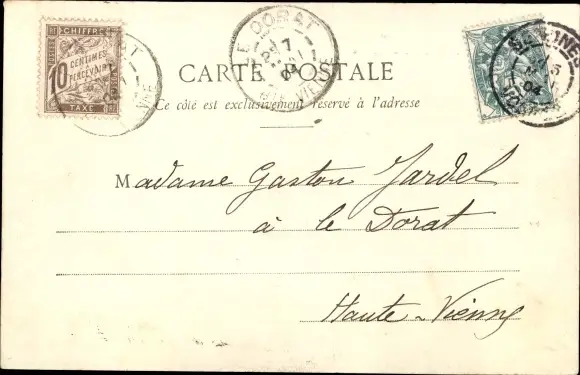 CHIFFRE
10
CENTIMES
À
PERCEVOIR
TAXE
LE DORAT
7
04
CARTE POSTALE
Ce côté est exclusivement réservé à l'adresse
04
Madame Gaston Jardel
à le Dorat
Haute-Vienne